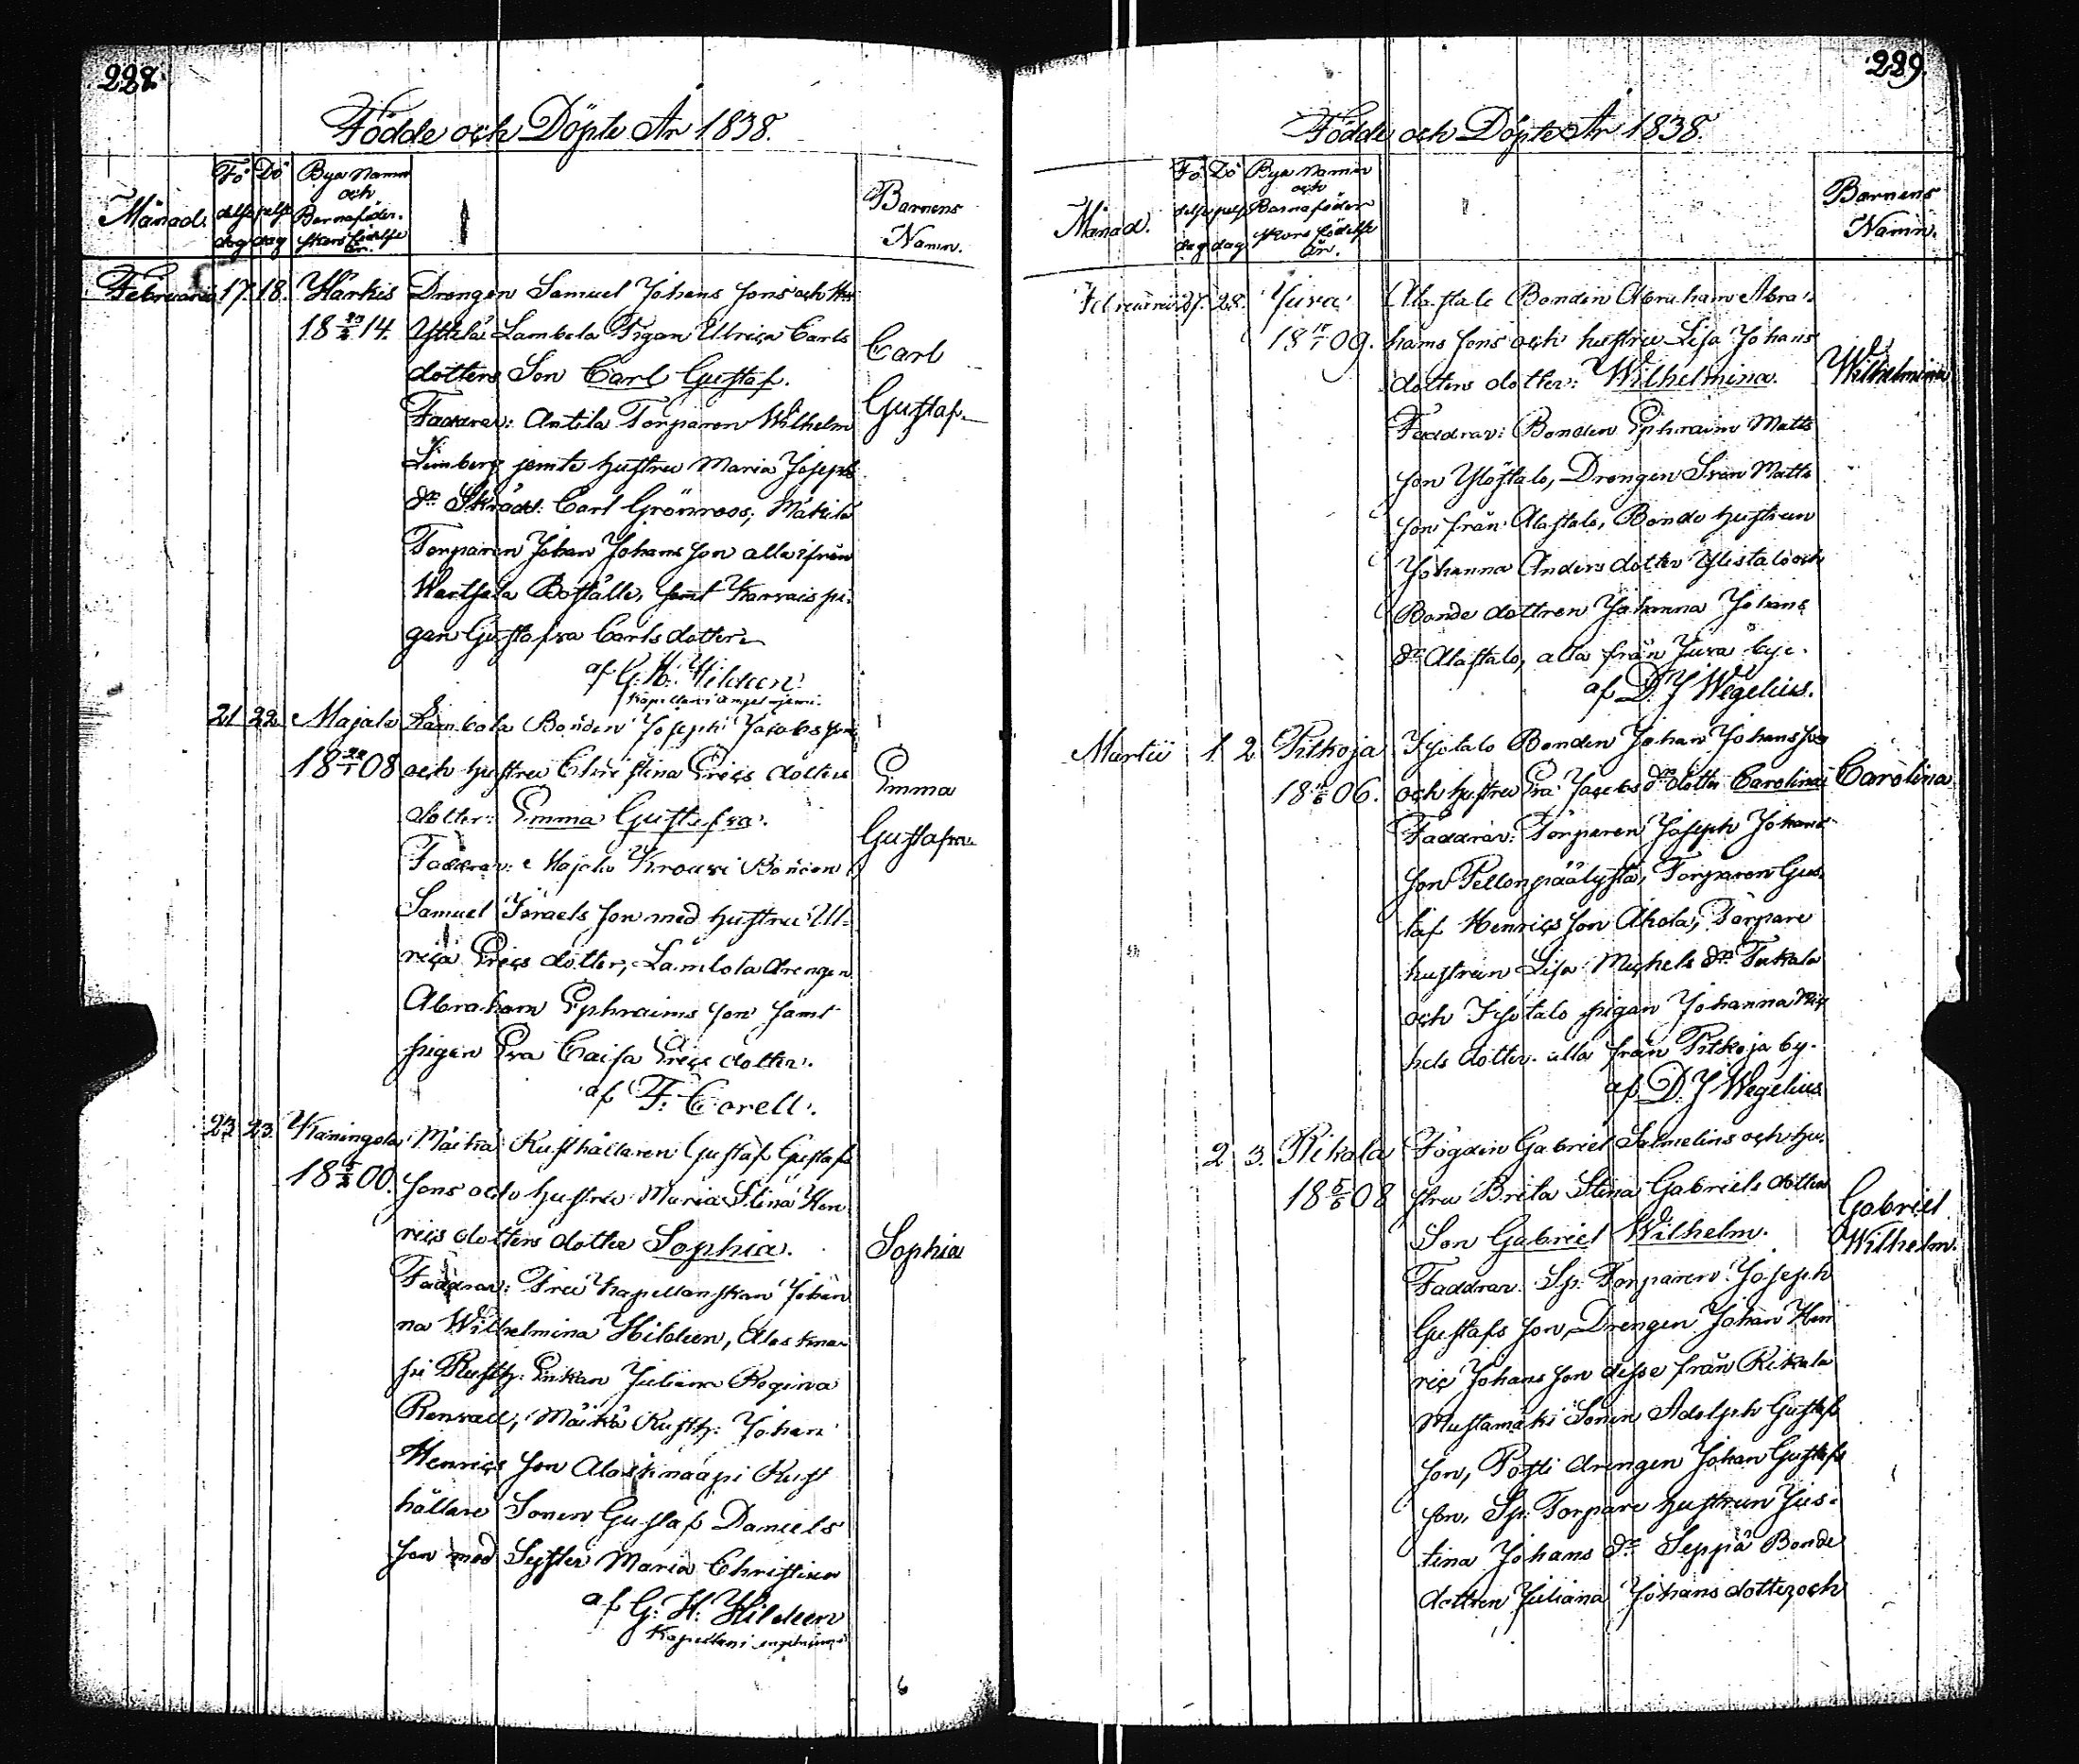 228.
Födde och Döpte År 1838.
Månad.
Fö
delse
dag
Dö
pelse
dag
Bya Namn
och
Barnaföder-
skans födelse
år.
Barnens
Namn.
Februarii 17. 18. Härkis Drengen Samuel Johans sons och
18 14. Yttelä Lambola Pigan Ulrica Carls
dotters Son Carl Gustaf.
Carl
Gustaf.
Faddrar: Antila Torparen Wilhelm
Limberg jemte hustru Maria Josephs
dr Skrädd: Carl Grönroos, Mäkilä
Torparen Johan Johans son alla ifrån
Boställe, samt Karvais pi-
gan Gustafva Carls dotter
af G. H. Hildeen
Kapellan i
21 22 Majala Lambola Bonden Joseph Jacobs sons
18 08 och hustru Christina Erics dotters
dotter: Emma Gustafva.
Emma
Gustafva.
Faddrar: Majala Krouvi Bonden
Samuel Israels son med hustru Ul-
rica Erics dotter, Lambola drengen
Abraham Ephraims son samt
pigan Eva Caisa Erics dotter.
af F. Corell.
23 23. Kaningola Mäikä Rusthållaren Gustaf Gustafs
18 00. sons och hustru Maria Stina Hen
rics dotters dotter Sophia.
Sophia
Faddrar: Fru Kapellanskan Johan
na Wilhelmina Hildeen, Alaskmaa-
pi Rusth: Enkan Juliana Regina
Renvall, Mäikä Rusth: Johan
Henrics son Alaskmaapi Rust
hållare Sonen Gustaf Daniels
son med Syster Maria Christina
af G: H: Hildeen
Kapellan i
229.
Födde och Döpte År 1838.
Månad.
Fö
delse
dag
Dö
pelse
dag
Bya Namn
och
Barnaföder
skans födelse
år.
Barnens
Namn.
Februarii 27. 28. Juva Alastalo Bonden Abraham Abra-
18 09. hams sons och hustru Lisa Johans
dotters dotter: Wilhelmina.
Wilhelmina
Faddrar: Bonden Ephraim Matts
son Ylöstalo, Drengen Sven Matts
son från Alastalo, Bonde hustrun
Johanna Anders dotter Ylestalo och
Bonde dottren Johanna Johans
dr Alastalo, alla från Juva by.
af D. J Wegelius.
Martii 1. 2. Pitkoja Isotalo Bonden Johan Johans sons
18 06. och hustru Eva Jacobs drs dotter Carolina
Carolina
Faddrar: Torparen Joseph Johans
son Pellonpäälystä, Torparen Gus-
taf Henrics son Ahola, Torpare
hustrun Lisa Michels dr Takala
och Isotalo pigan Johanna Mic
hels dotter. alla från Pitkoja by.
af D. J Wegelius
2 3. Rikala Fogden Gabriel Salmelins och hu-
18 08 stru Brita Stina Gabriels dotters
Son Gabriel Wilhelm.
Gabriel
Wilhelm.
Faddrar: Sp: Torparen Joseph
Gustafs son, Drengen Johan Hen
ric Johans son desse från Rikala
Mustamäki Sonen Adolph Gustafs
son, Potti drengen Johan Gustafs
son, Sp: Torpare hustrun Jus-
tina Johans dr Seppä Bonde
dottren Juliana Johans dotter och